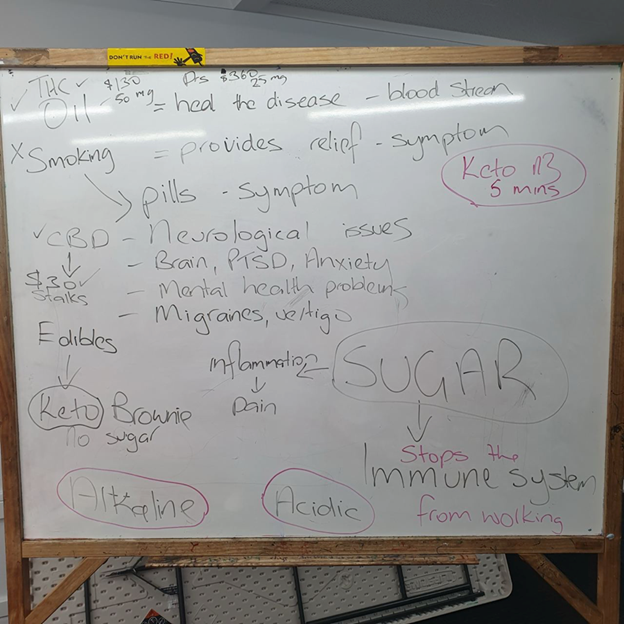 DON'T RUN the RED!
✓ THC ✓ $130 Drs $360
Oil 50 mg 25 mg
= heal the disease - blood stream
X Smoking = provides relief - symptom
Keto
5 mins
pills - symptom
✓ CBD - Neurological issues
- Brain, PTSD, Anxiety
$30 ✓
Stalks
- Mental health problems
- Migranes, vertigo
Edibles
Inflammation
SUGAR
Pain
Keto Brownie
no sugar
Stops the
Immune system
from working
Alkaline
Acidic